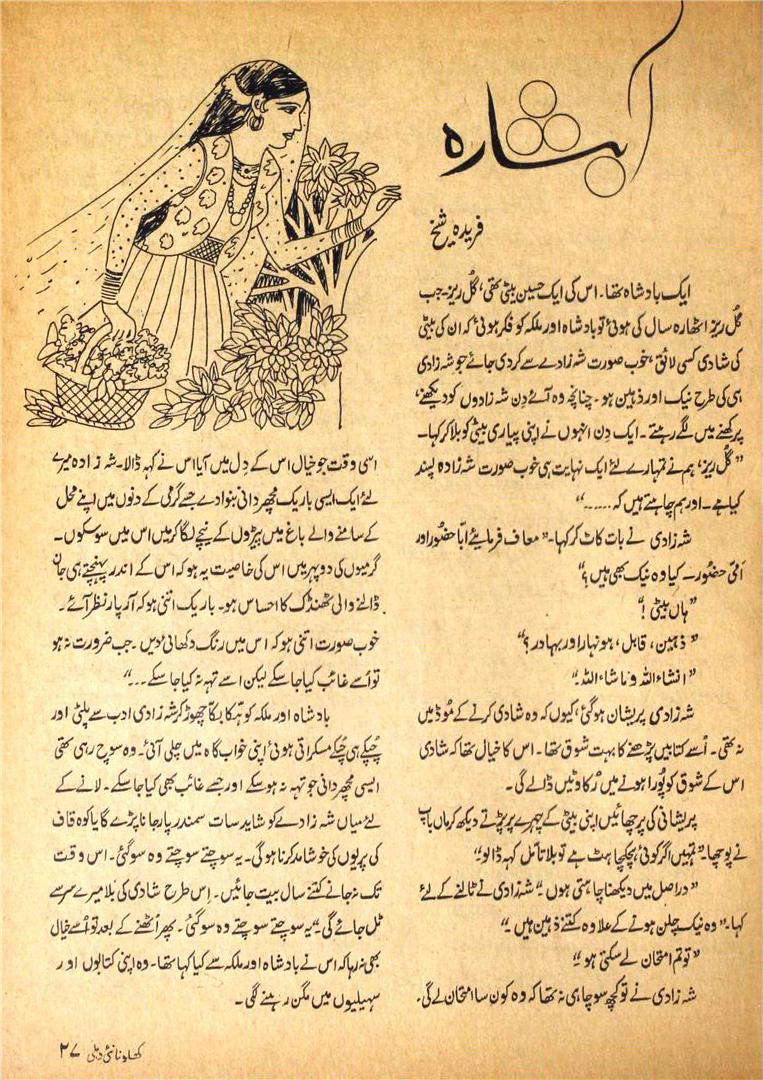 آبشارہ
فریدہ شیخ
ایک بادشاہ تھا۔ اس کی ایک حسین بیٹی تھی، گُل ریز۔ جب
گُل ریز اٹھارہ سال کی ہوئی تو بادشاہ اور ملکہ کو فکر ہوئی کہ ان کی بیٹی
کی شادی کسی لائق، خوب صورت شہ زادے سے کردی جائے جو شہ زادی
ہی کی طرح نیک اور ذہین ہو۔ چنانچہ وہ آئے دن شہ زادوں کو دیکھنے،
پرکھنے میں لگے رہتے۔ ایک دن انہوں نے اپنی پیاری بیٹی کو بلا کر کہا۔
”گُل ریز، ہم نے تمہارے لئے ایک نہایت ہی خوب صورت شہ زادہ پسند
کیا ہے۔ اور ہم چاہتے ہیں کہ ......“
شہ زادی نے بات کاٹ کر کہا۔ ”معاف فرمایئے ابّا حضور اور
امّی حضور۔ کیا وہ نیک بھی ہیں؟“
”ہاں بیٹی!“
”ذہین، قابل، ہونہار اور بہادر؟“
”انشاء اللہ و ماشاء اللہ۔“
شہ زادی پریشان ہوگئی، کیوں کہ وہ شادی کرنے کے مُوڈ میں
نہ تھی۔ اُسے کتابیں پڑھنے کا بہت شوق تھا۔ اس کا خیال تھا کہ شادی
اس کے شوق کو پُورا ہونے میں رُکاوٹیں ڈالے گی۔
پریشانی کی پرچھائیں اپنی بیٹی کے چہرے پر پڑتے دیکھ کر ماں باپ
نے پوچھا۔ ”تمہیں اگر کوئی ہچکچاہٹ ہے تو بلا تامّل کہہ ڈالو۔“
”دراصل میں دیکھنا چاہتی ہوں۔“ شہ زادی نے ٹالنے کے لئے
کہا۔ ”وہ نیک چلن ہونے کے علاوہ کتنے ذہین ہیں۔“
”تو تم امتحان لے سکتی ہو۔“
شہ زادی نے تو کچھ سوچا ہی نہ تھا کہ وہ کون سا امتحان لے گی۔
اسی وقت جو خیال اس کے دِل میں آیا اس نے کہہ ڈالا۔ شہ زادہ میرے
لئے ایک ایسی باریک مچھر دانی بنوادے جسے گرمی کے دنوں میں اپنے محل
کے سامنے والے باغ میں پیڑوں کے نیچے لگا کر میں اس میں سو سکوں۔
گرمیوں کی دوپہر میں اس کی خاصیت یہ ہو کہ اس کے اندر پہنچتے ہی جان
ڈالنے والی ٹھنڈک کا احساس ہو۔ باریک اتنی ہو کہ آر پار نظر آئے۔
خوب صورت اتنی ہو کہ اس میں رنگ دکھائی دیں۔ جب ضرورت نہ ہو
تو اُسے غائب کیا جا سکے لیکن اسے تہہ نہ کیا جا سکے...“
بادشاہ اور ملکہ کو ہکّا بکّا چھوڑ کر شہ زادی ادب سے پلٹی اور
چُپکے ہی چُپکے مسکراتی ہوئی اپنی خواب گاہ میں چلی آئی۔ وہ سوچ رہی تھی
ایسی مچھر دانی جو تہہ نہ ہو سکے اور جسے غائب بھی کیا جا سکے۔ لانے کے
لئے میاں شہ زادے کو شاید سات سمندر پار جانا پڑے گا یا کوہ قاف
کی پریوں کی خوشامد کرنا ہوگی۔ یہ سوچتے سوچتے وہ سو گئی۔ اس وقت
تک نہ جانے کتنے سال بیت جائیں۔ اِس طرح شادی کی بلا میرے سر سے
ٹل جائے گی۔“ یہ سوچتے سوچتے وہ سو گئی۔ پھر اُٹھنے کے بعد تو اُسے خیال
بھی نہ رہا کہ اس نے بادشاہ اور ملکہ سے کیا کہا تھا۔ وہ اپنی کتابوں اور
سہیلیوں میں مگن رہنے لگی۔
کھلونا نئی دہلی ۲۷